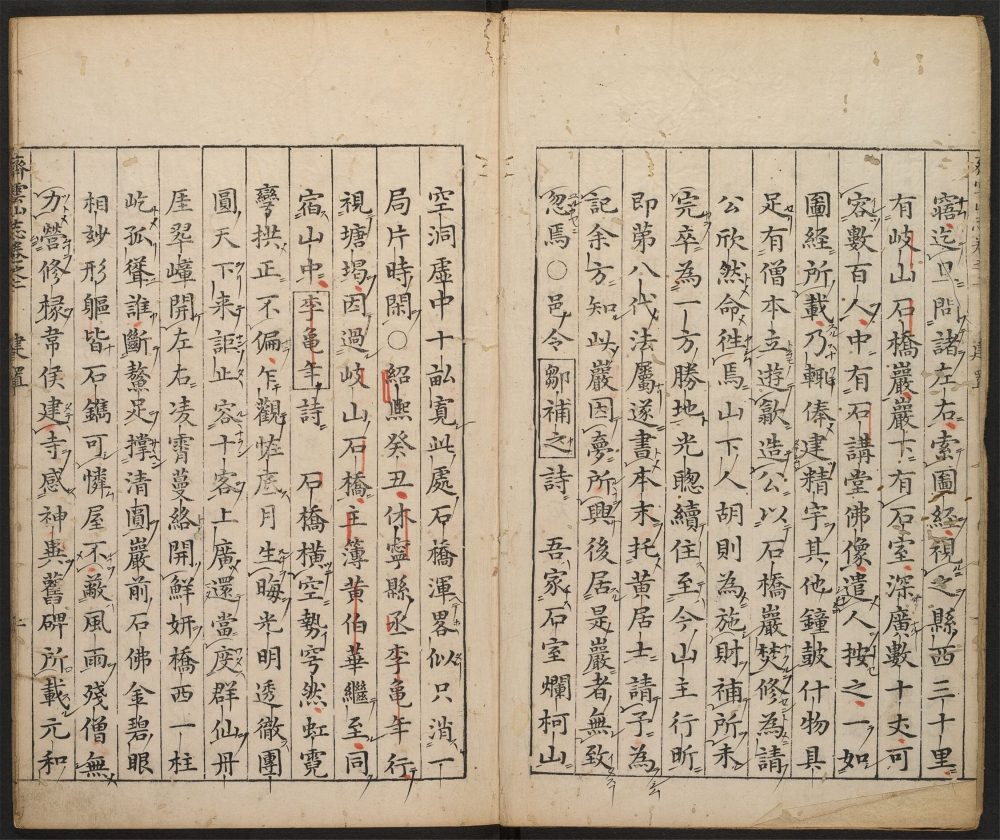 寤迄旦問諸左右索圖經視之縣西三十里
有岐山石橋巖巖下有石室深廣數十丈可
容數百人中有石講堂佛像遣人按之一如
圖經所載乃輙俸建精宇其他鐘皷什物具
足有僧本立遊歙造公以石橋巖焚修為請
公欣然命徃焉山下人胡則為施財補所未
完卒為一方勝地光聰續住至今山主行昕
即第八代法屬遂書本末托黄居士請予為
記余方知此巖因夢所興後居是巖者無致
忽焉○邑令鄒補之詩　吾家石室爛柯山
空洞虛中十畝寛此處石橋渾畧似只消一
局片時閑○紹熙癸丑休寧縣丞李亀年行
視塘堨因過岐山石橋主簿黄伯華繼至同
宿山中李亀年詩　石橋橫空勢穹然虹霓
彎拱正不偏乍觀恠底月生晦光明透徹團
圓天下来詎止容十客上廣還當度群仙丹
厓翠嶂開左右凌霄蔓絡開鮮妍橋西一柱
屹孤聳誰斷鰲足撑清圓巖前石佛金碧眼
相妙形軀皆石鐫可憐屋不蔽風雨殘僧無
力營修椽韋侯建寺感神異舊碑所載元和
齊雲山志卷之二　建置